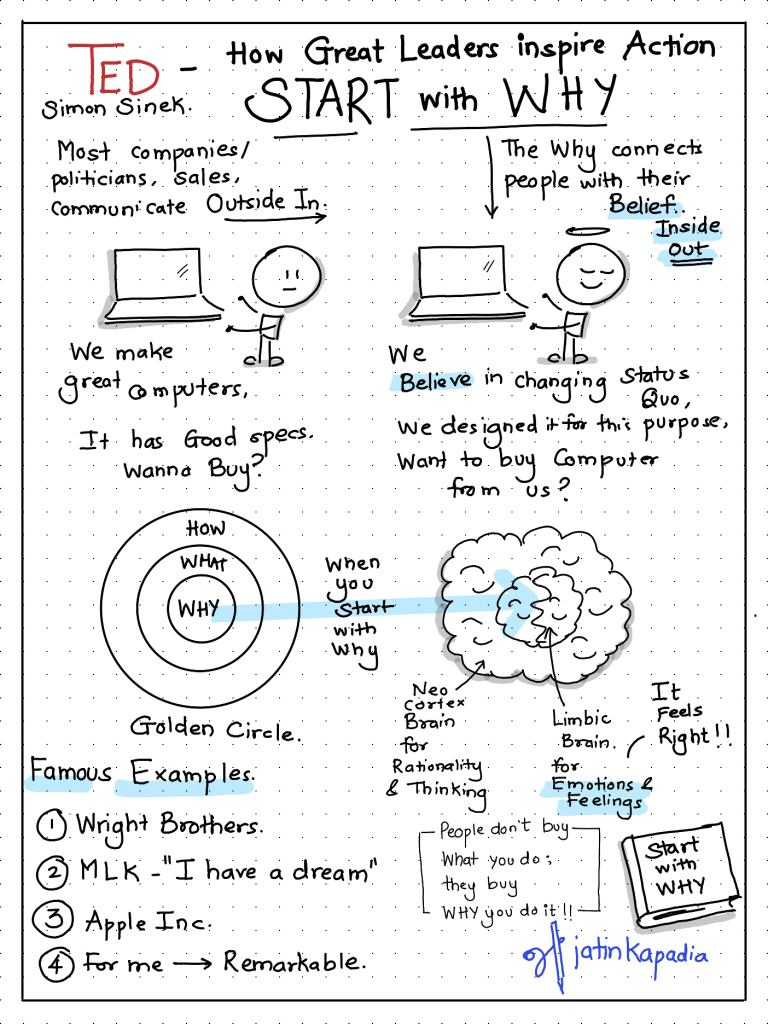 TED - How Great Leaders inspire Action
Simon Sinek.
START with WHY
Most companies/
politicians, sales,
communicate Outside In.
The Why connects
people with their
Belief..
Inside
Out
We make
great computers,
It has Good specs.
Wanna Buy?
We
Believe in changing Status
Quo,
We designed it for this purpose,
Want to buy Computer
from us?
HOW
WHAT
WHY
Golden Circle.
When
you
Start
with
Why
Neo
Cortex
Brain
for
Rationality
& Thinking
Limbic
Brain.
for
Emotions &
Feelings
It
Feels
Right!!
Famous Examples.
1 Wright Brothers.
2 MLK - "I have a dream"
3 Apple Inc.
4 For me → Remarkable.
People don't buy
What you do;
they buy
WHY you do it!!
Start
with
WHY
jatin kapadia